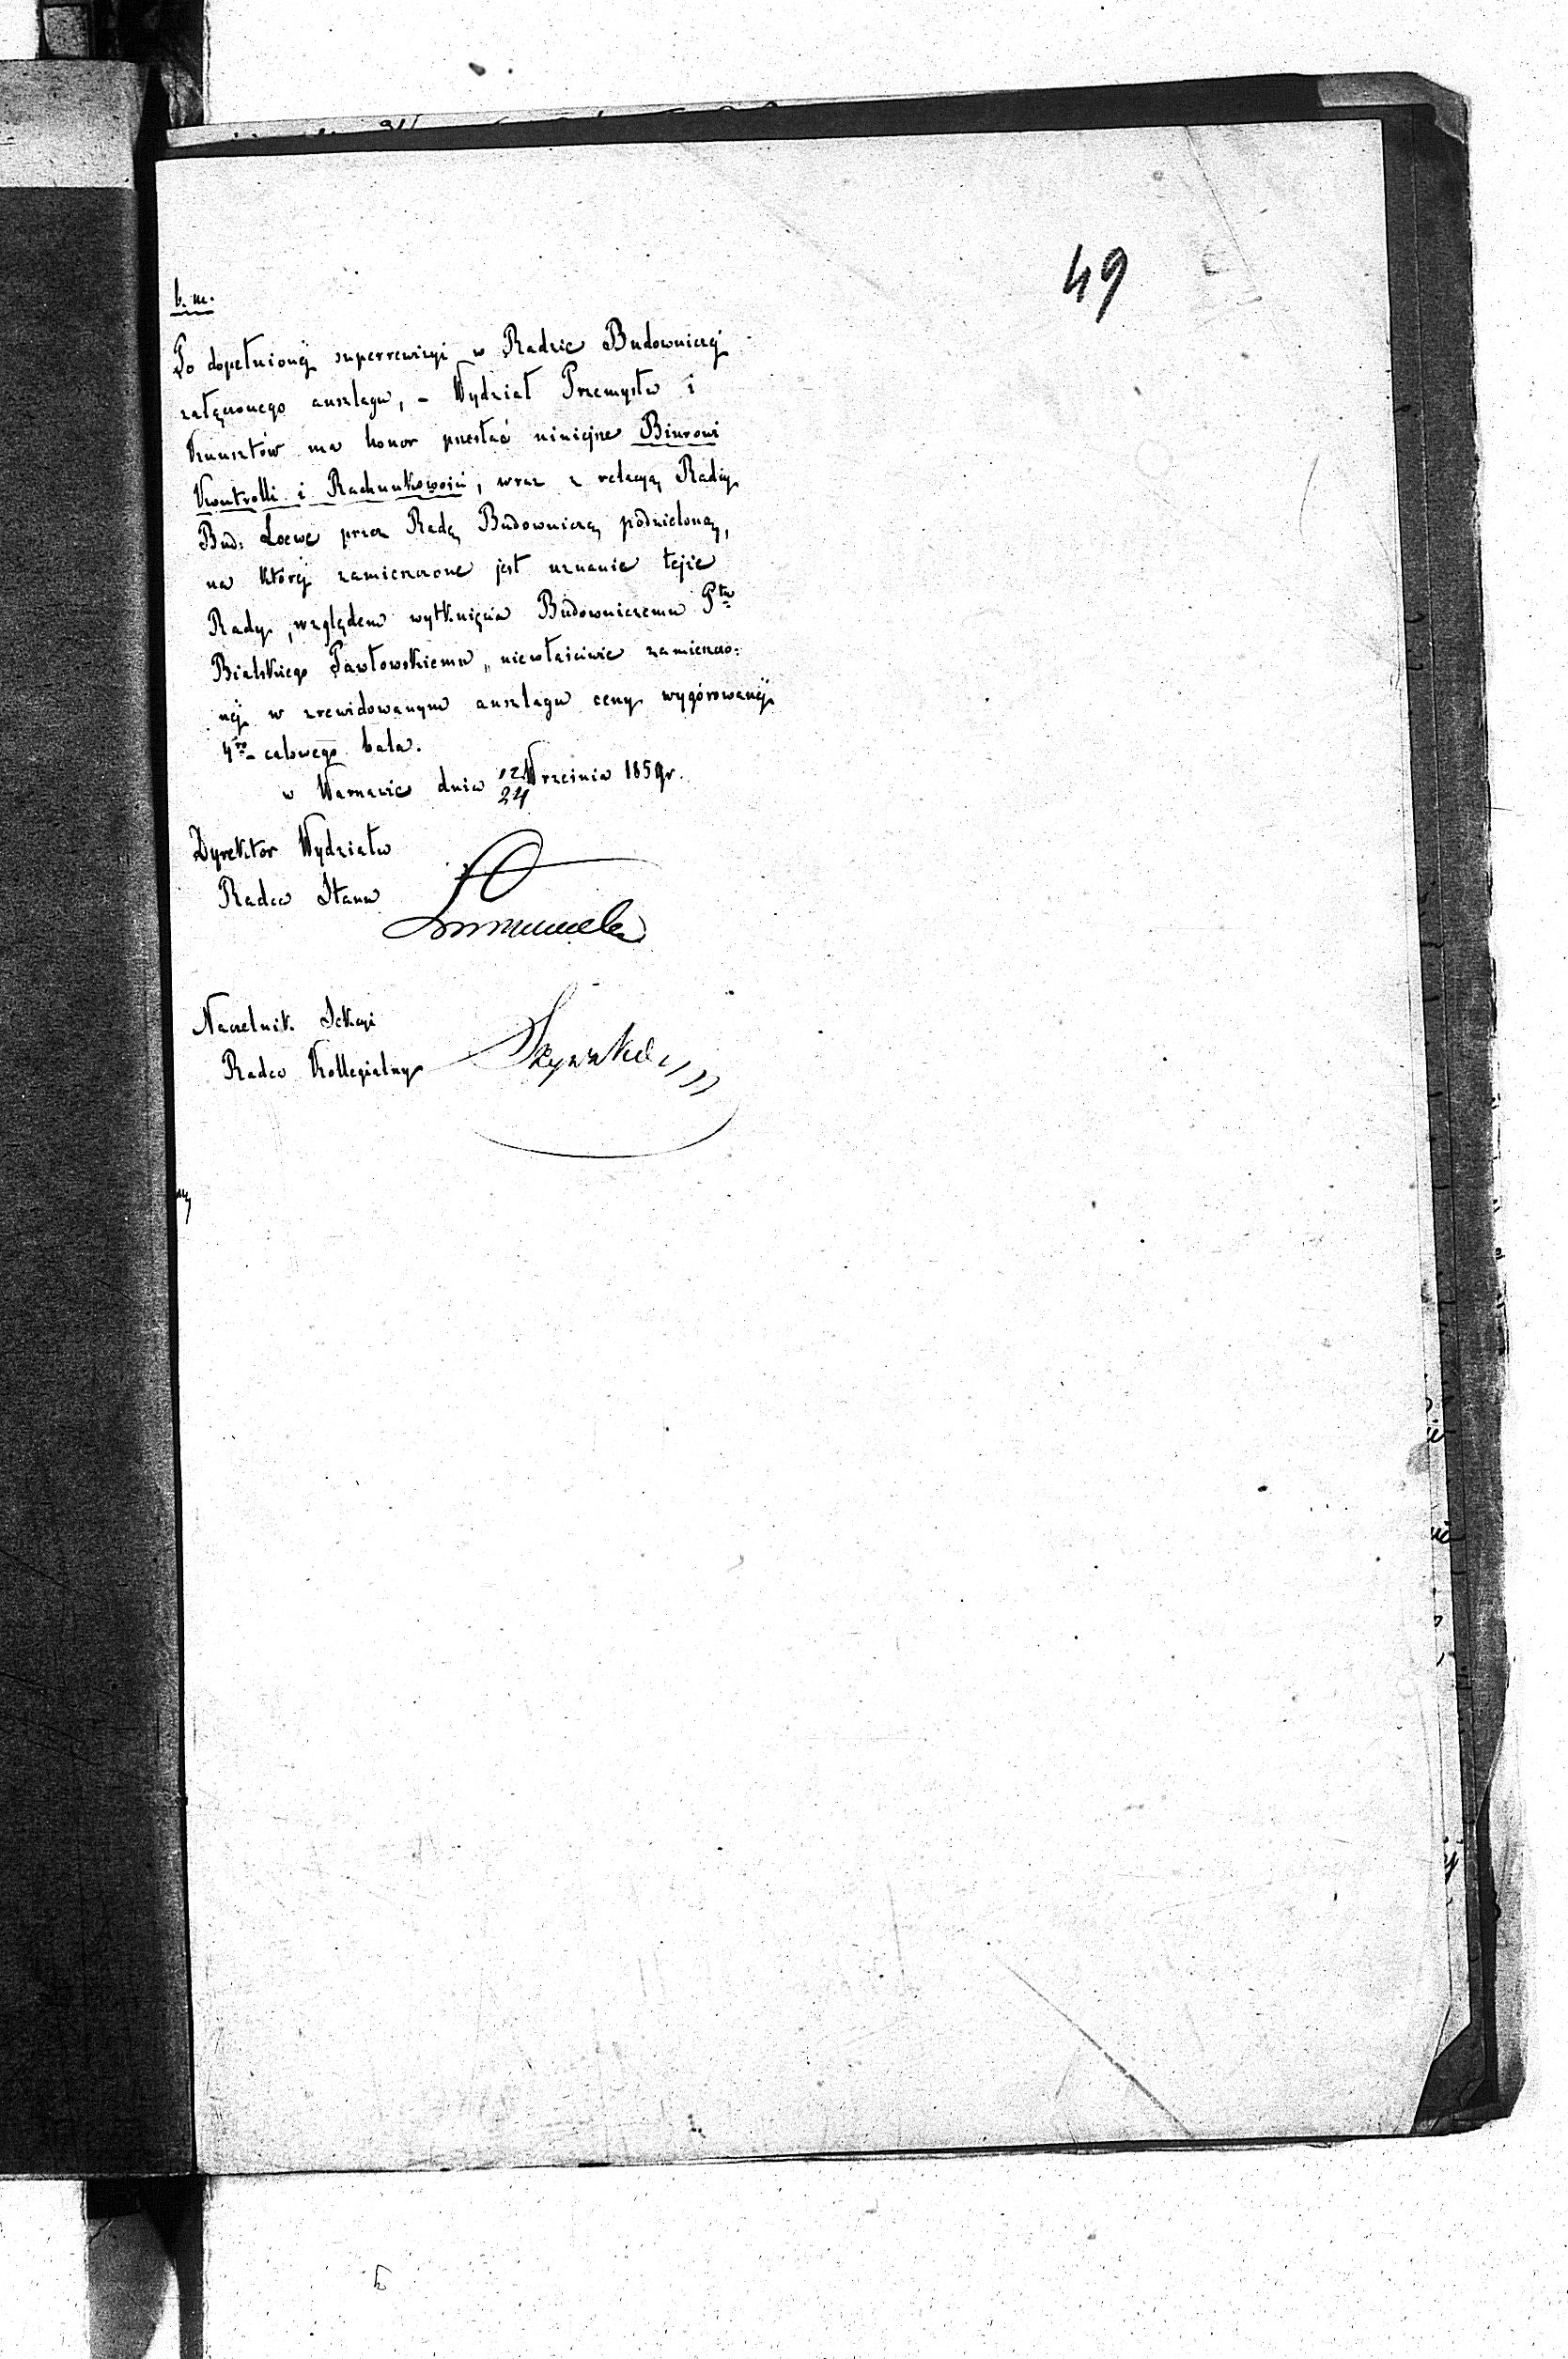 49
b. m.
Po dopełnionéj superrewizyi w Radzie Budowniczéj
załączonego anszlagu, – Wydział Przemysłu i
Kunsztów ma honor przesłać niniejsze Biurowi
Kontrolli i Rachunkowości, wraz z relacyą Radcy
Bud: Loewe przez Radę Budowniczą podzieloną,
na któréj zamieszczone jest uznanie tejże
Rady, względem wytknięcia Budowniczemu Ptu
Bialskiego Pawłowskiemu, niewłaściwie zamieszczo:
néj w zrewidowanym anszlagu ceny wygórowanéj
4ro calowego bala.
w Warszawie dnia 12/24 Września 1859 r.
Dyrektor Wydziału
Radca Stanu
Naczelnik Sekcyi
Radca Kollegialny